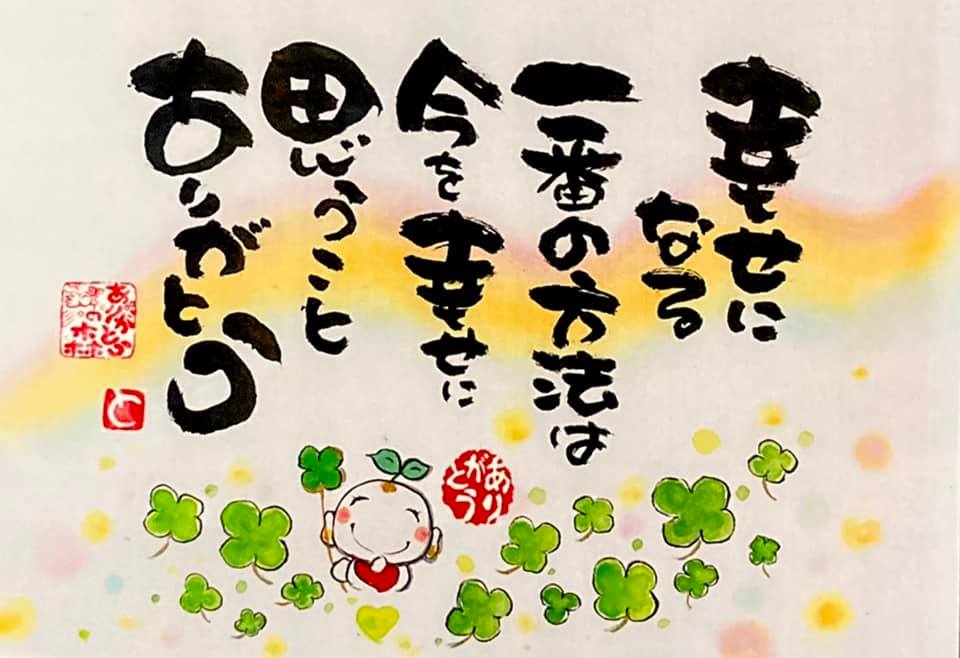 幸せに
なる
一番の方法は
今を幸せに
思うこと
ありがとう
ありがとう
の森
と
ありがとう